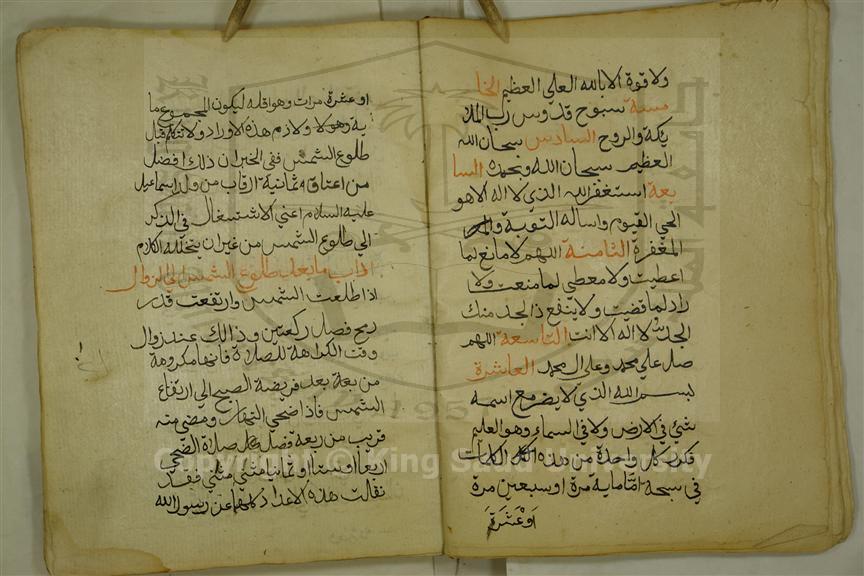 ولا قوة الا بالله العلي العظيم الخا
مسة سبوح قدوس رب الملا
يكة والروح السادس سبحان الله
العظيم سبحان الله وبحمده السا
بعة استغفر الله الذي لا اله الا هو
الحي القيوم واساله التوبة والم
المغفرة الثامنة اللهم لا مانع لما
اعطيت ولا معطي لما منعت ولا
راد لما قضيت ولا ينفع ذا الجد منك
الجد لا اله الا انت التاسعة اللهم
صل علي محمد وعلي ال محمد العاشرة
لبسم الله الذي لا يضر مع اسمه
شيئ في الارض ولا في السماء وهو العليم
فكرر كل واحدة من هذه الكلمات
في سبحة امّا ماية مرة او سبعين مرة
اَوْعَشَرَةَ
او عشرة مرات وهو اقله ليكون المجموع ما
ية وهولا ولازم هذه الاوراد ولا تتكلم قبل
طلوع الشمس ففي الخبر ان ذلك افضل
من اعتاق ثمانية ارقاب من ولد اسماعيل
عليه السلام اعني الاشتغال في الذكر
الي طلوع الشمس من غير ان يتخلله الكلام
اداب ما بعد طلوع الشمس الي الزوال
اذا طلعت الشمس وارتفعت قدر
رمح فصل ركعتين وذالك عند زوال
وقت الكراهة للصلاة فانها مكروهة
من بعد فريضة الصبح الي ارتفاع
الشمس فاذا ضحي النهار ومضي منه
قريب من ربعه فصل صلاة الضحي
اربعا او ستا او ثمانيا مثني مثني فقد
نقلت هذه الاعداد كلها عن رسول الله
Copyright © King Saud University
1957